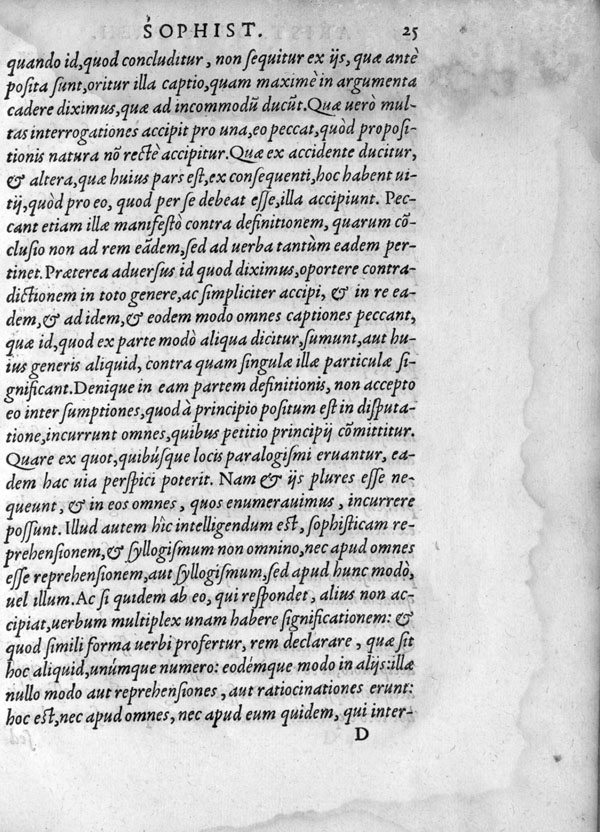 SOPHIST. 25
quando id,quod concluditur, non sequitur ex ijs, quæ antè
posita sunt,oritur illa captio,quam maximè in argumenta
cadere diximus,quæ ad incommodũ ducũt.Quæ uerò mul-
tas interrogationes accipit pro una,eo peccat,quòd proposi-
tionis natura nõ rectè accipitur.Quæ ex accidente ducitur,
& altera,quæ huius pars est,ex consequenti,hoc habent ui-
tij,quòd pro eo, quod per se debeat esse,illa accipiunt. Pec-
cant etiam illæ manifestò contra definitionem, quarum cõ-
clusio non ad rem eãdem,sed ad uerba tantùm eadem per-
tinet.Præterea aduersus id quod diximus,oportere contra-
dictionem in toto genere,ac simpliciter accipi, & in re ea-
dem,& ad idem,& eodem modo omnes captiones peccant,
quæ id,quod ex parte modò aliqua dicitur,sumunt,aut hu-
ius generis aliquid, contra quam singulæ illæ particulæ si-
gnificant.Denique in eam partem definitionis, non accepto
eo inter sumptiones,quod à principio positum est in disputa-
tione,incurrunt omnes,quibus petitio principij cõmittitur.
Quare ex quot,quibúsque locis paralogismi eruantur, ea-
dem hac uia perspici poterit. Nam & ijs plures esse ne-
queunt, & in eos omnes, quos enumerauimus, incurrere
possunt. Illud autem hîc intelligendum est, sophisticam re-
prehensionem,& syllogismum non omnino,nec apud omnes
esse reprehensionem,aut syllogismum,sed apud hunc modò,
uel illum.Ac si quidem ab eo, qui respondet, alius non ac-
cipiat,uerbum multiplex unam habere significationem: &
quod simili forma uerbi profertur, rem declarare, quæ sit
hoc aliquid,unúmque numero: eodémque modo in alijs:illæ
nullo modo aut reprehensiones, aut ratiocinationes erunt:
hoc est,nec apud omnes, nec apud eum quidem, qui inter-
D